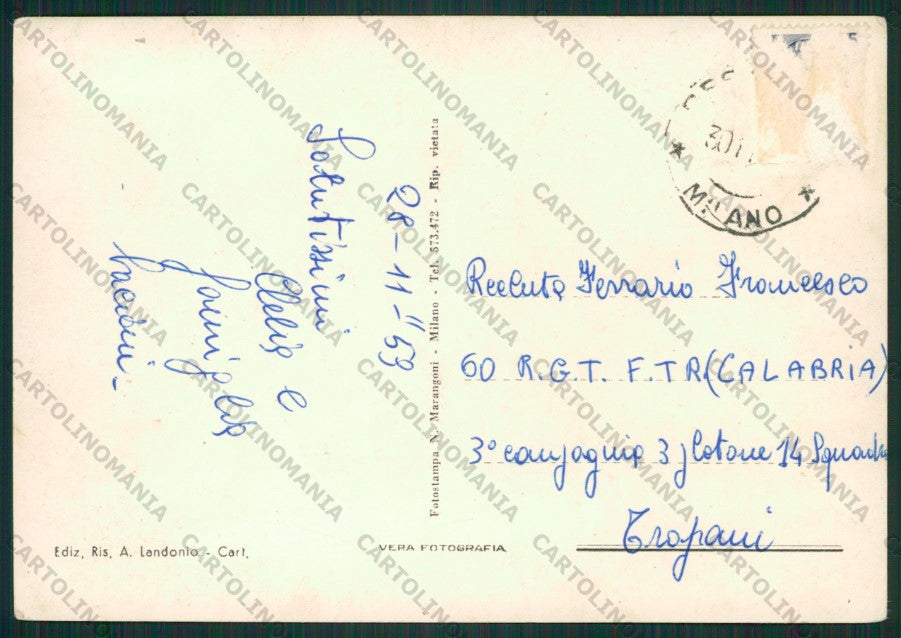 28-11-59
Salutissimi
Clelia e
famiglia
Fotostampa N. Marangoni - Milano - Tel. 573.472 - Rip. vietata
30.11
MILANO
Recluta Ferrario Francesco
60 R.G.T. F.TR(CALABRIA)
3° compagnia 3 plotone 14 Squadra
Trapani
Ediz, Ris, A. Landonio - Cart,
VERA FOTOGRAFIA
CARTOLINOMANIA